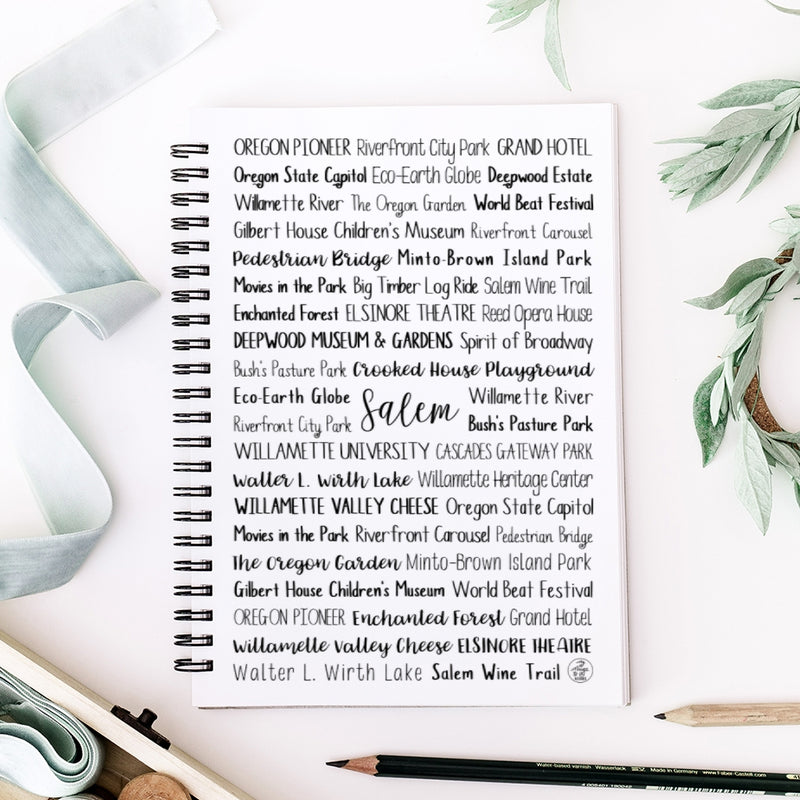 OREGON PIONEER Riverfront City Park GRAND HOTEL
Oregon State Capitol Eco-Earth Globe Deepwood Estate
Willamette River The Oregon Garden World Beat Festival
Gilbert House Children's Museum Riverfront Carousel
Pedestrian Bridge Minto-Brown Island Park
Movies in the Park Big Timber Log Ride Salem Wine Trail
Enchanted Forest ELSINORE THEATRE Reed Opera House
DEEPWOOD MUSEUM & GARDENS Spirit of Broadway
Bush's Pasture Park Crooked House Playground
Eco-Earth Globe Salem Willamette River
Riverfront City Park Bush's Pasture Park
WILLAMETTE UNIVERSITY CASCADES GATEWAY PARK
Walter L. Wirth Lake Willamette Heritage Center
WILLAMETTE VALLEY CHEESE Oregon State Capitol
Movies in the Park Riverfront Carousel Pedestrian Bridge
The Oregon Garden Minto-Brown Island Park
Gilbert House Children's Museum World Beat Festival
OREGON PIONEER Enchanted Forest Grand Hotel
Willamette Valley Cheese ELSINORE THEATRE
Walter L. Wirth Lake Salem Wine Trail
Water-based varnish Wasserlack Made in Germany www.Faber-Castell.com